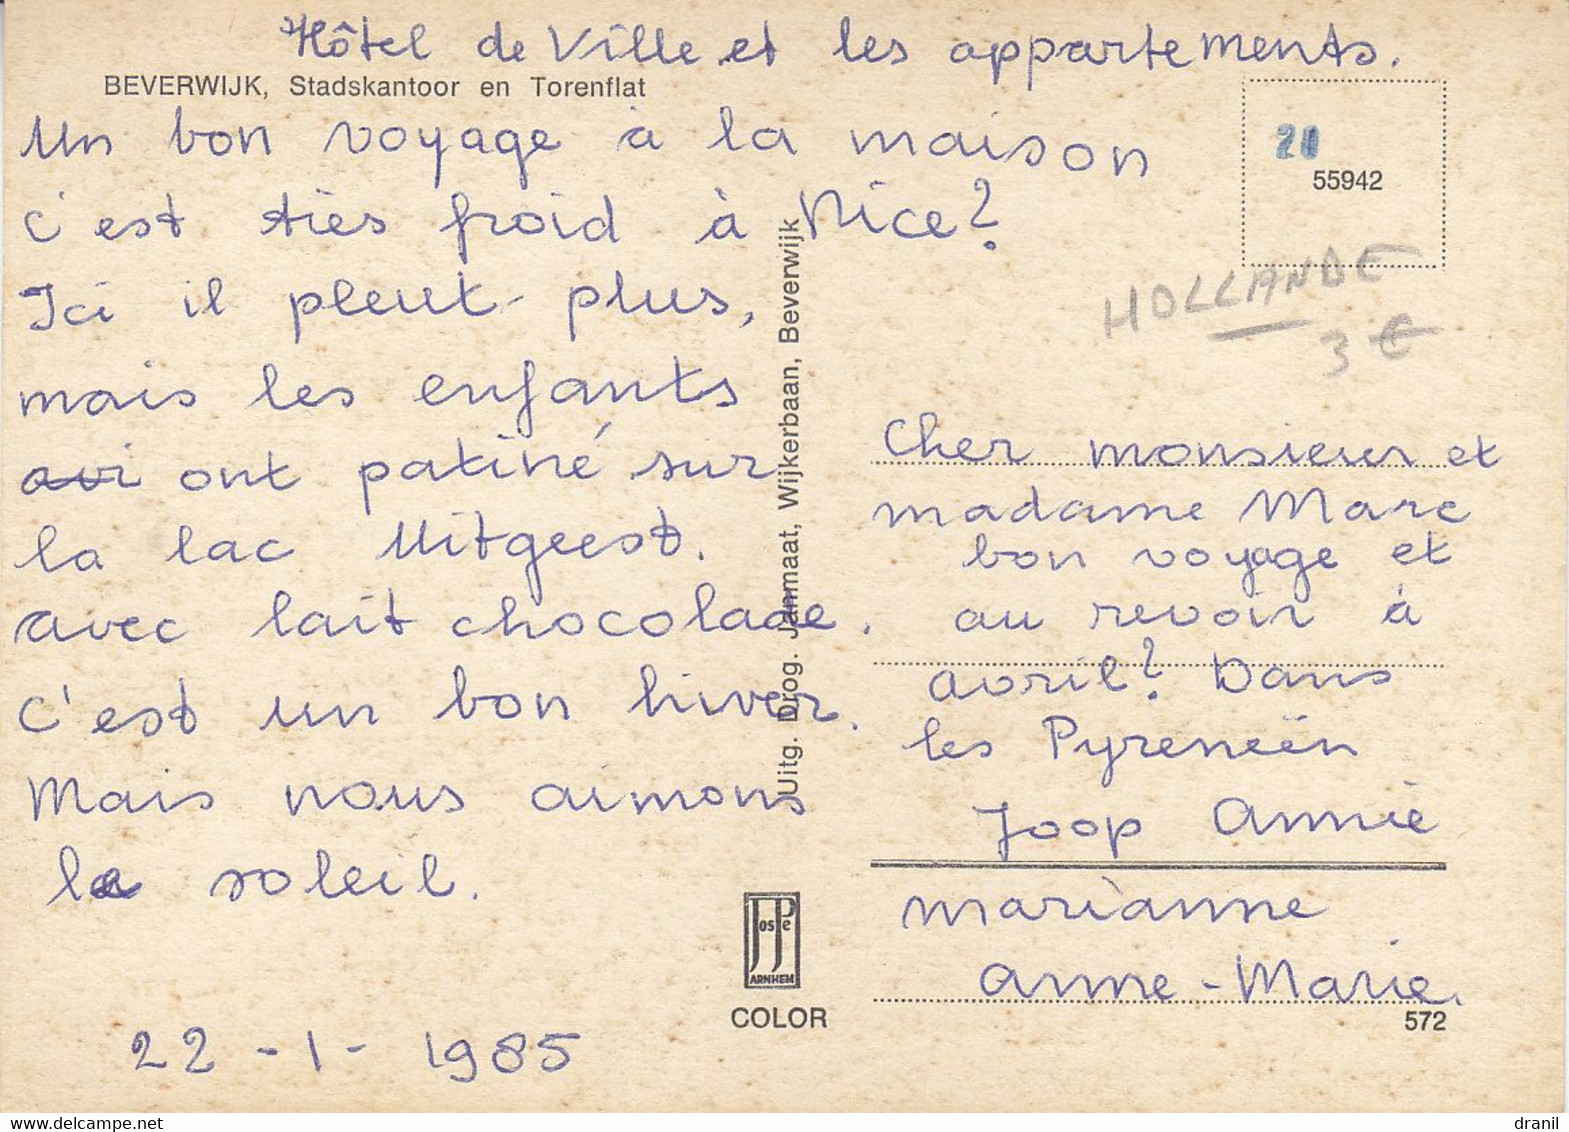 Hôtel de Ville et les appartements.
BEVERWIJK, Stadskantoor en Torenflat
Un bon voyage à la maison
c'est tiès froid à Nice?
Ici il pleut plus,
mais les enfants
avi ont patiné sur
la lac Uitgeest.
avec lait chocolade.
c'est un bon hiver.
Mais nous aimons
le soleil.
22-1-1985
Uitg. Drog. Janmaat, Wijkerbaan, Beverwijk
JosPe
ARNHEM
COLOR
20
55942
HOLLANDE
3 €
Cher monsieur et
madame Marc
bon voyage et
au revoir à
avril? Dans
les Pyreneën
Joop Annie
Marianne
Anne-Marie.
572
dranil